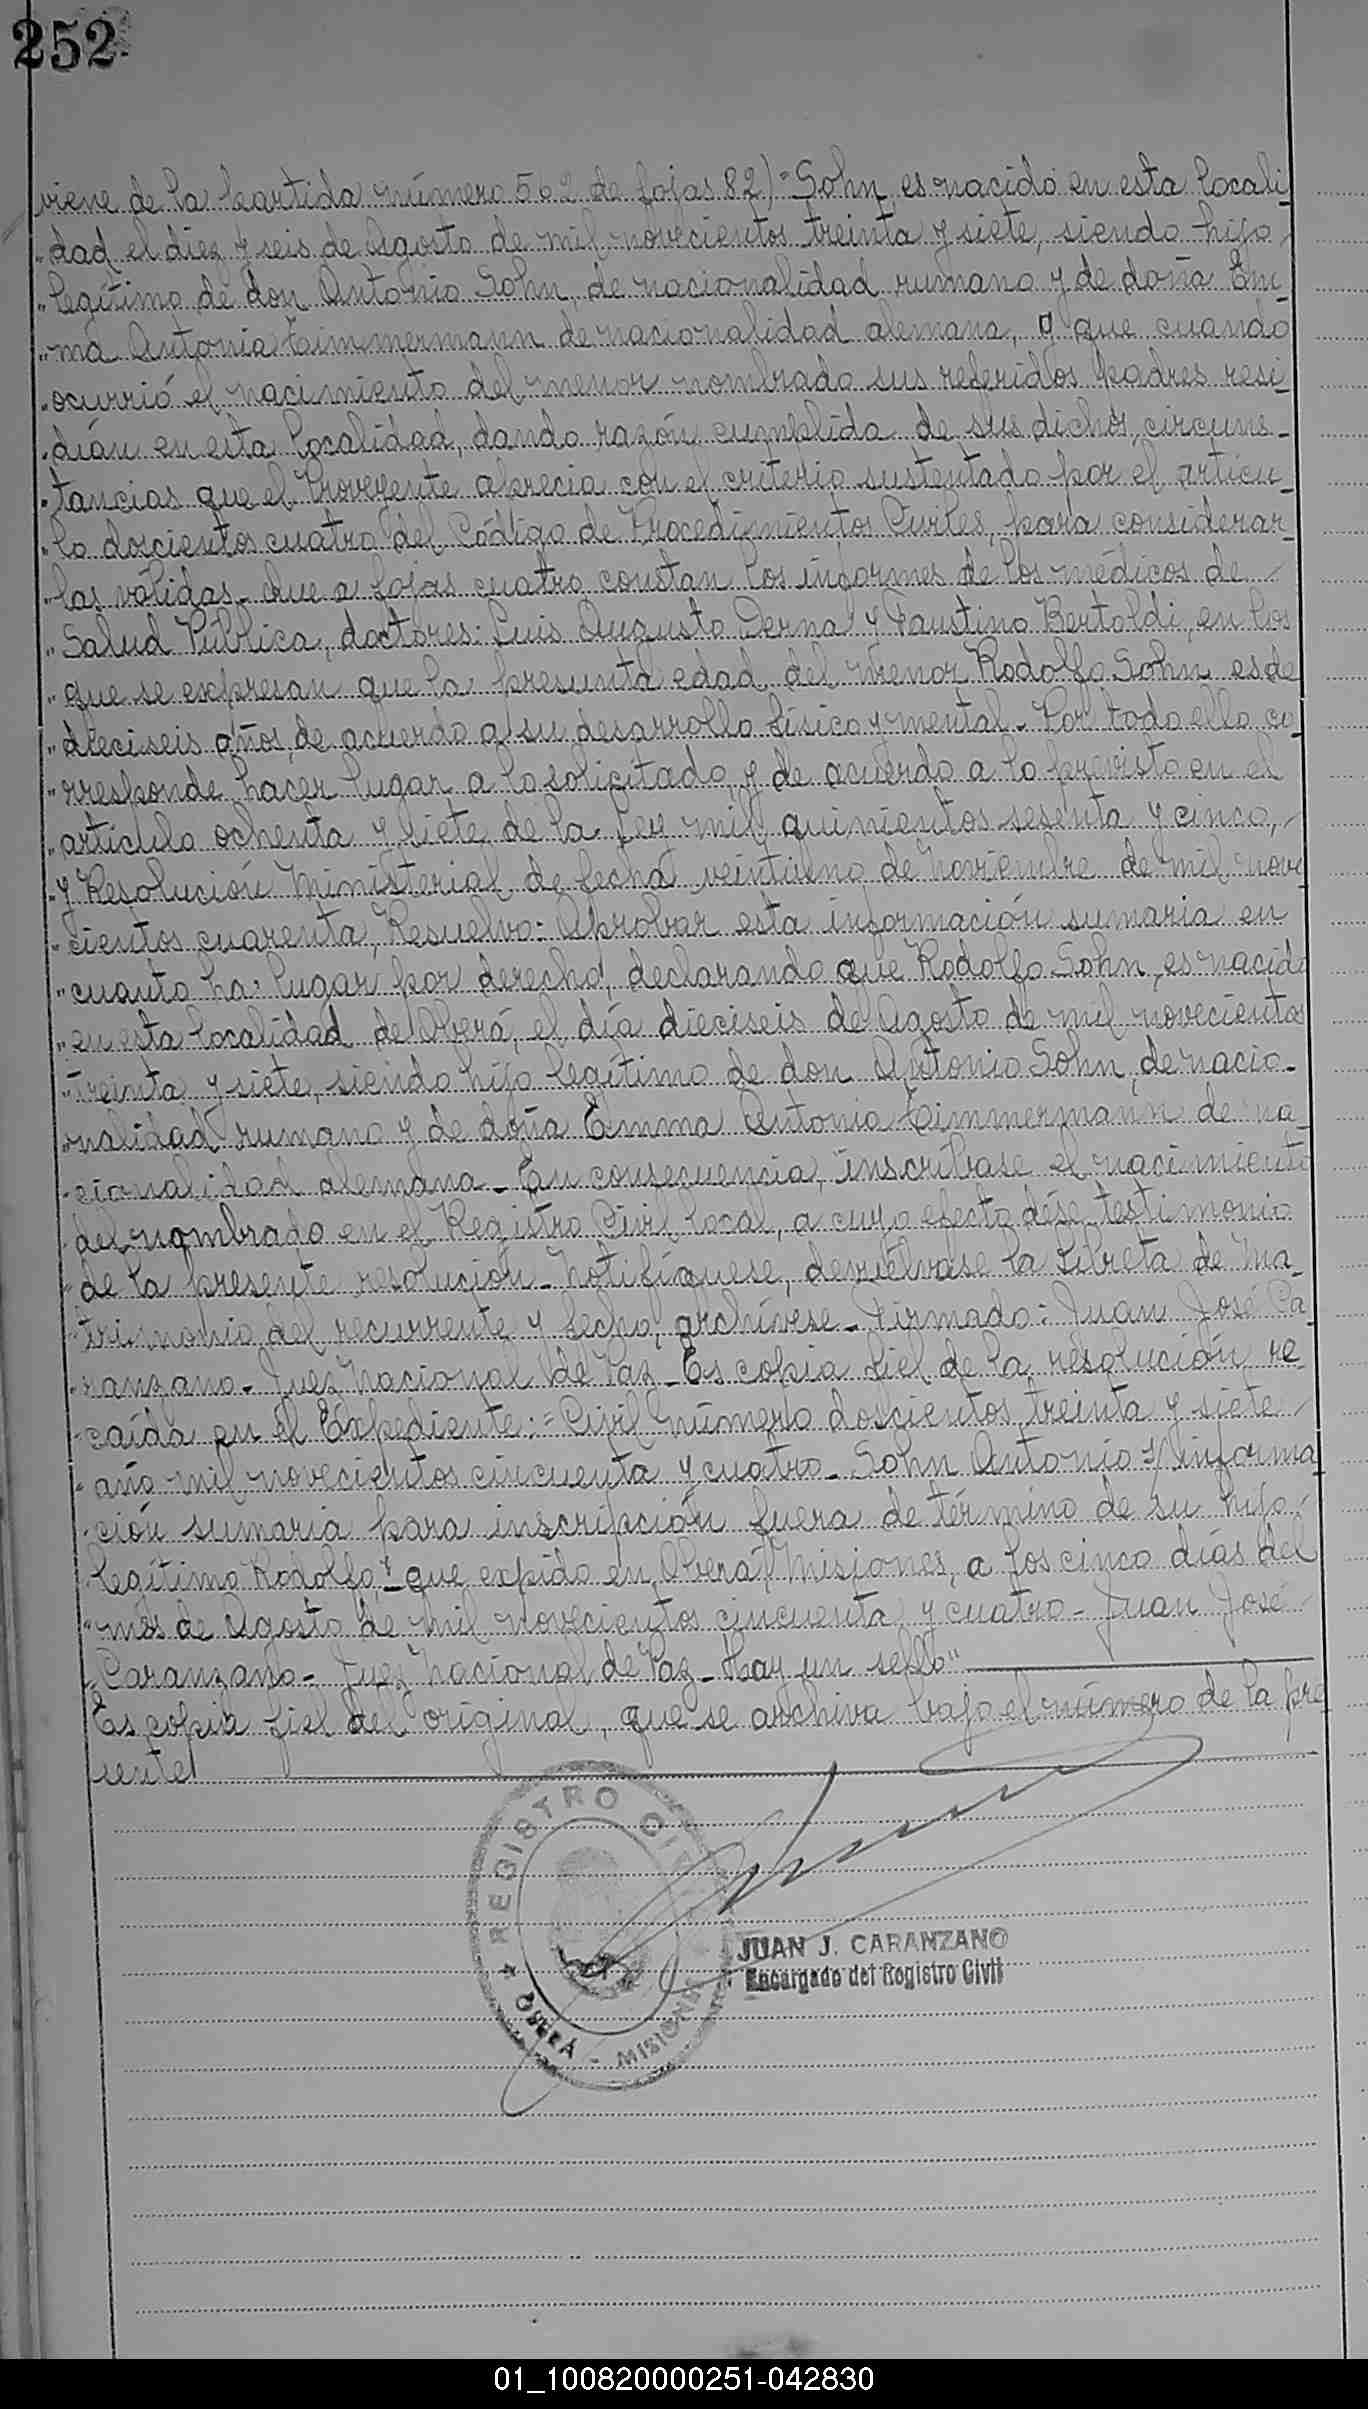 252
viene de la partida número 562 de fojas 82)" Sohn, es nacido en esta locali
"dad el diez y seis de Agosto de mil novecientos treinta y siete, siendo hijo
"legítimo de don Antonio Sohn, de nacionalidad rumano y de doña Em-
"ma Antonia Zimmermann de nacionalidad alemana, y que cuando
"ocurrió el nacimiento del menor nombrado sus referidos padres resi
"dían en esta localidad, dando razón cumplida de sus dichos, circuns-
"tancias que el Proveyente aprecia con el criterio sustentado por el artícu-
"lo doscientos cuatro del Código de Procedimientos Civiles, para considerar
"las válidas. Que a fojas cuatro constan los informes de los médicos de
"Salud Pública, doctores: Luis Augusto Derna y Faustino Bertoldi, en los
"que se expresan que la presunta edad del menor Rodolfo Sohn es de
"dieciseis años, de acuerdo a su desarrollo físico y mental. Por todo ello co
"rresponde hacer lugar a lo solicitado y de acuerdo a lo previsto en el
"artículo ochenta y siete de la Ley mil quinientos sesenta y cinco,
"y Resolución Ministerial de fecha veintiuno de Noviembre de mil nove
"cientos cuarenta, Resuelvo: Aprobar esta información sumaria en
"cuanto ha lugar por derecho, declarando que Rodolfo Sohn, es nacido
"en esta localidad de Oberá, el día dieciseis de Agosto de mil novecientos
"treinta y siete, siendo hijo legítimo de don Antonio Sohn, de nacio-
"nalidad rumano y de doña Emma Antonia Zimmermann de na
"cionalidad alemana. En consecuencia, inscríbase el nacimiento
"del nombrado en el Registro Civil local, a cuyo efecto dése testimonio
"de la presente resolución. Notifíquese, devuélvase la Libreta de Ma-
"trimonio del recurrente y fecho, archívese. Firmado: Juan José Ca
"ranzano. Juez Nacional de Paz. Es copia fiel de la resolución re-
"caída en el Expediente:= Civil número doscientos treinta y siete
"año mil novecientos cincuenta y cuatro. Sohn Antonio s/ informa
"ción sumaria para inscripción fuera de término de su hijo
"legítimo Rodolfo," que expido en Oberá, Misiones, a los cinco días del
"mes de Agosto de mil novecientos cincuenta y cuatro. Juan José
"Caranzano. Juez Nacional de Paz. Hay un sello"
Es copia fiel del original, que se archiva bajo el número de la pre
sente
REGISTRO CIVIL
OBERÁ - MISIONES
JUAN J. CARANZANO
Encargado del Registro Civil
01_100820000251-042830